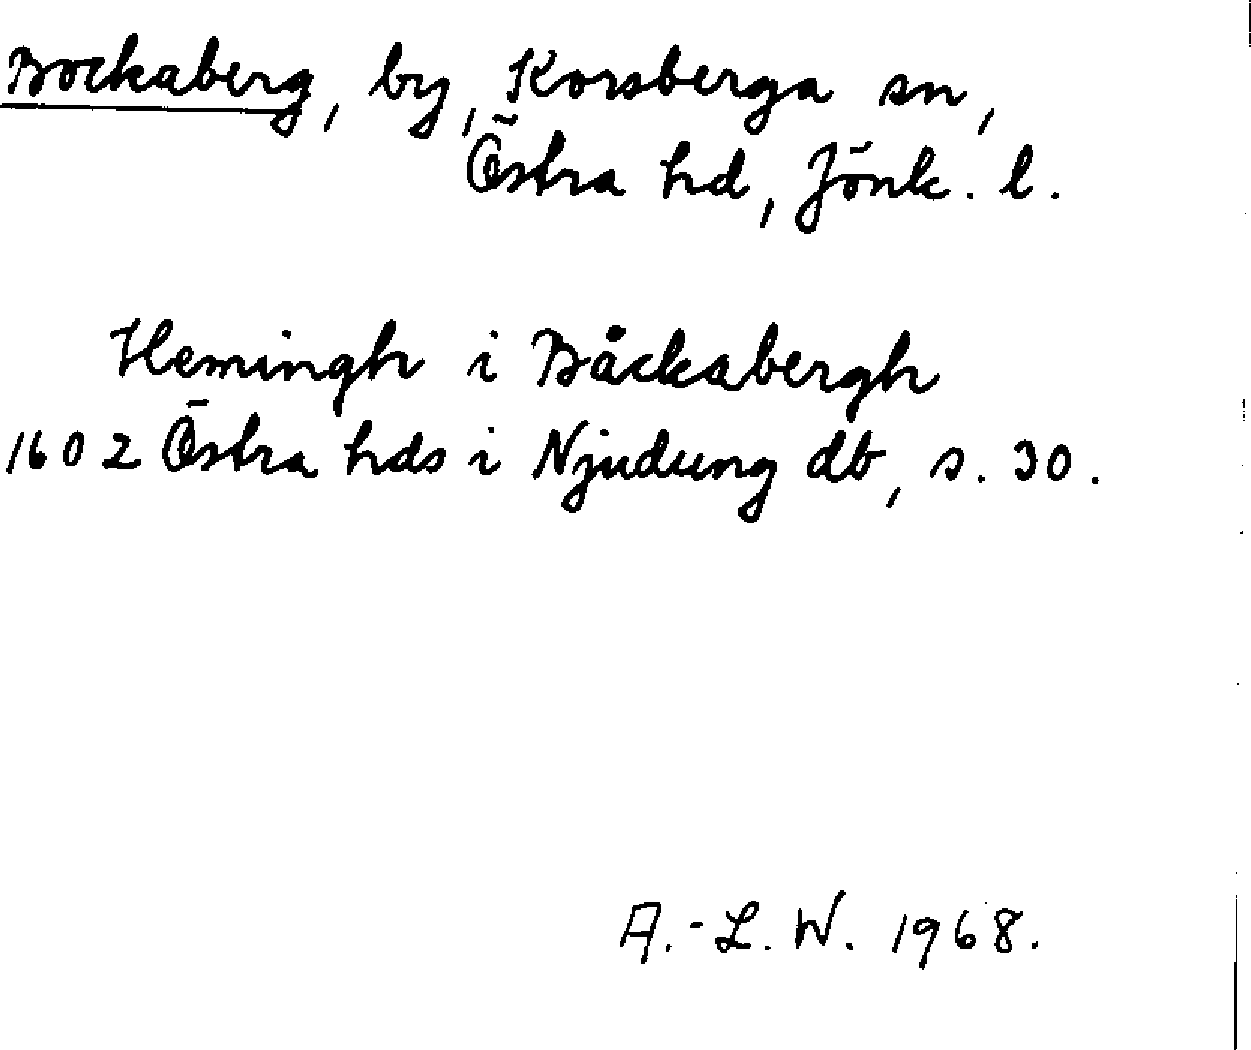 Bockaberg, by, Korsberga sn,
Östra hd, Jönk. l.
Hemingh i Båckabergh
1602 Östra hds i Njudung db, s. 30.
A.-L. W. 1968.